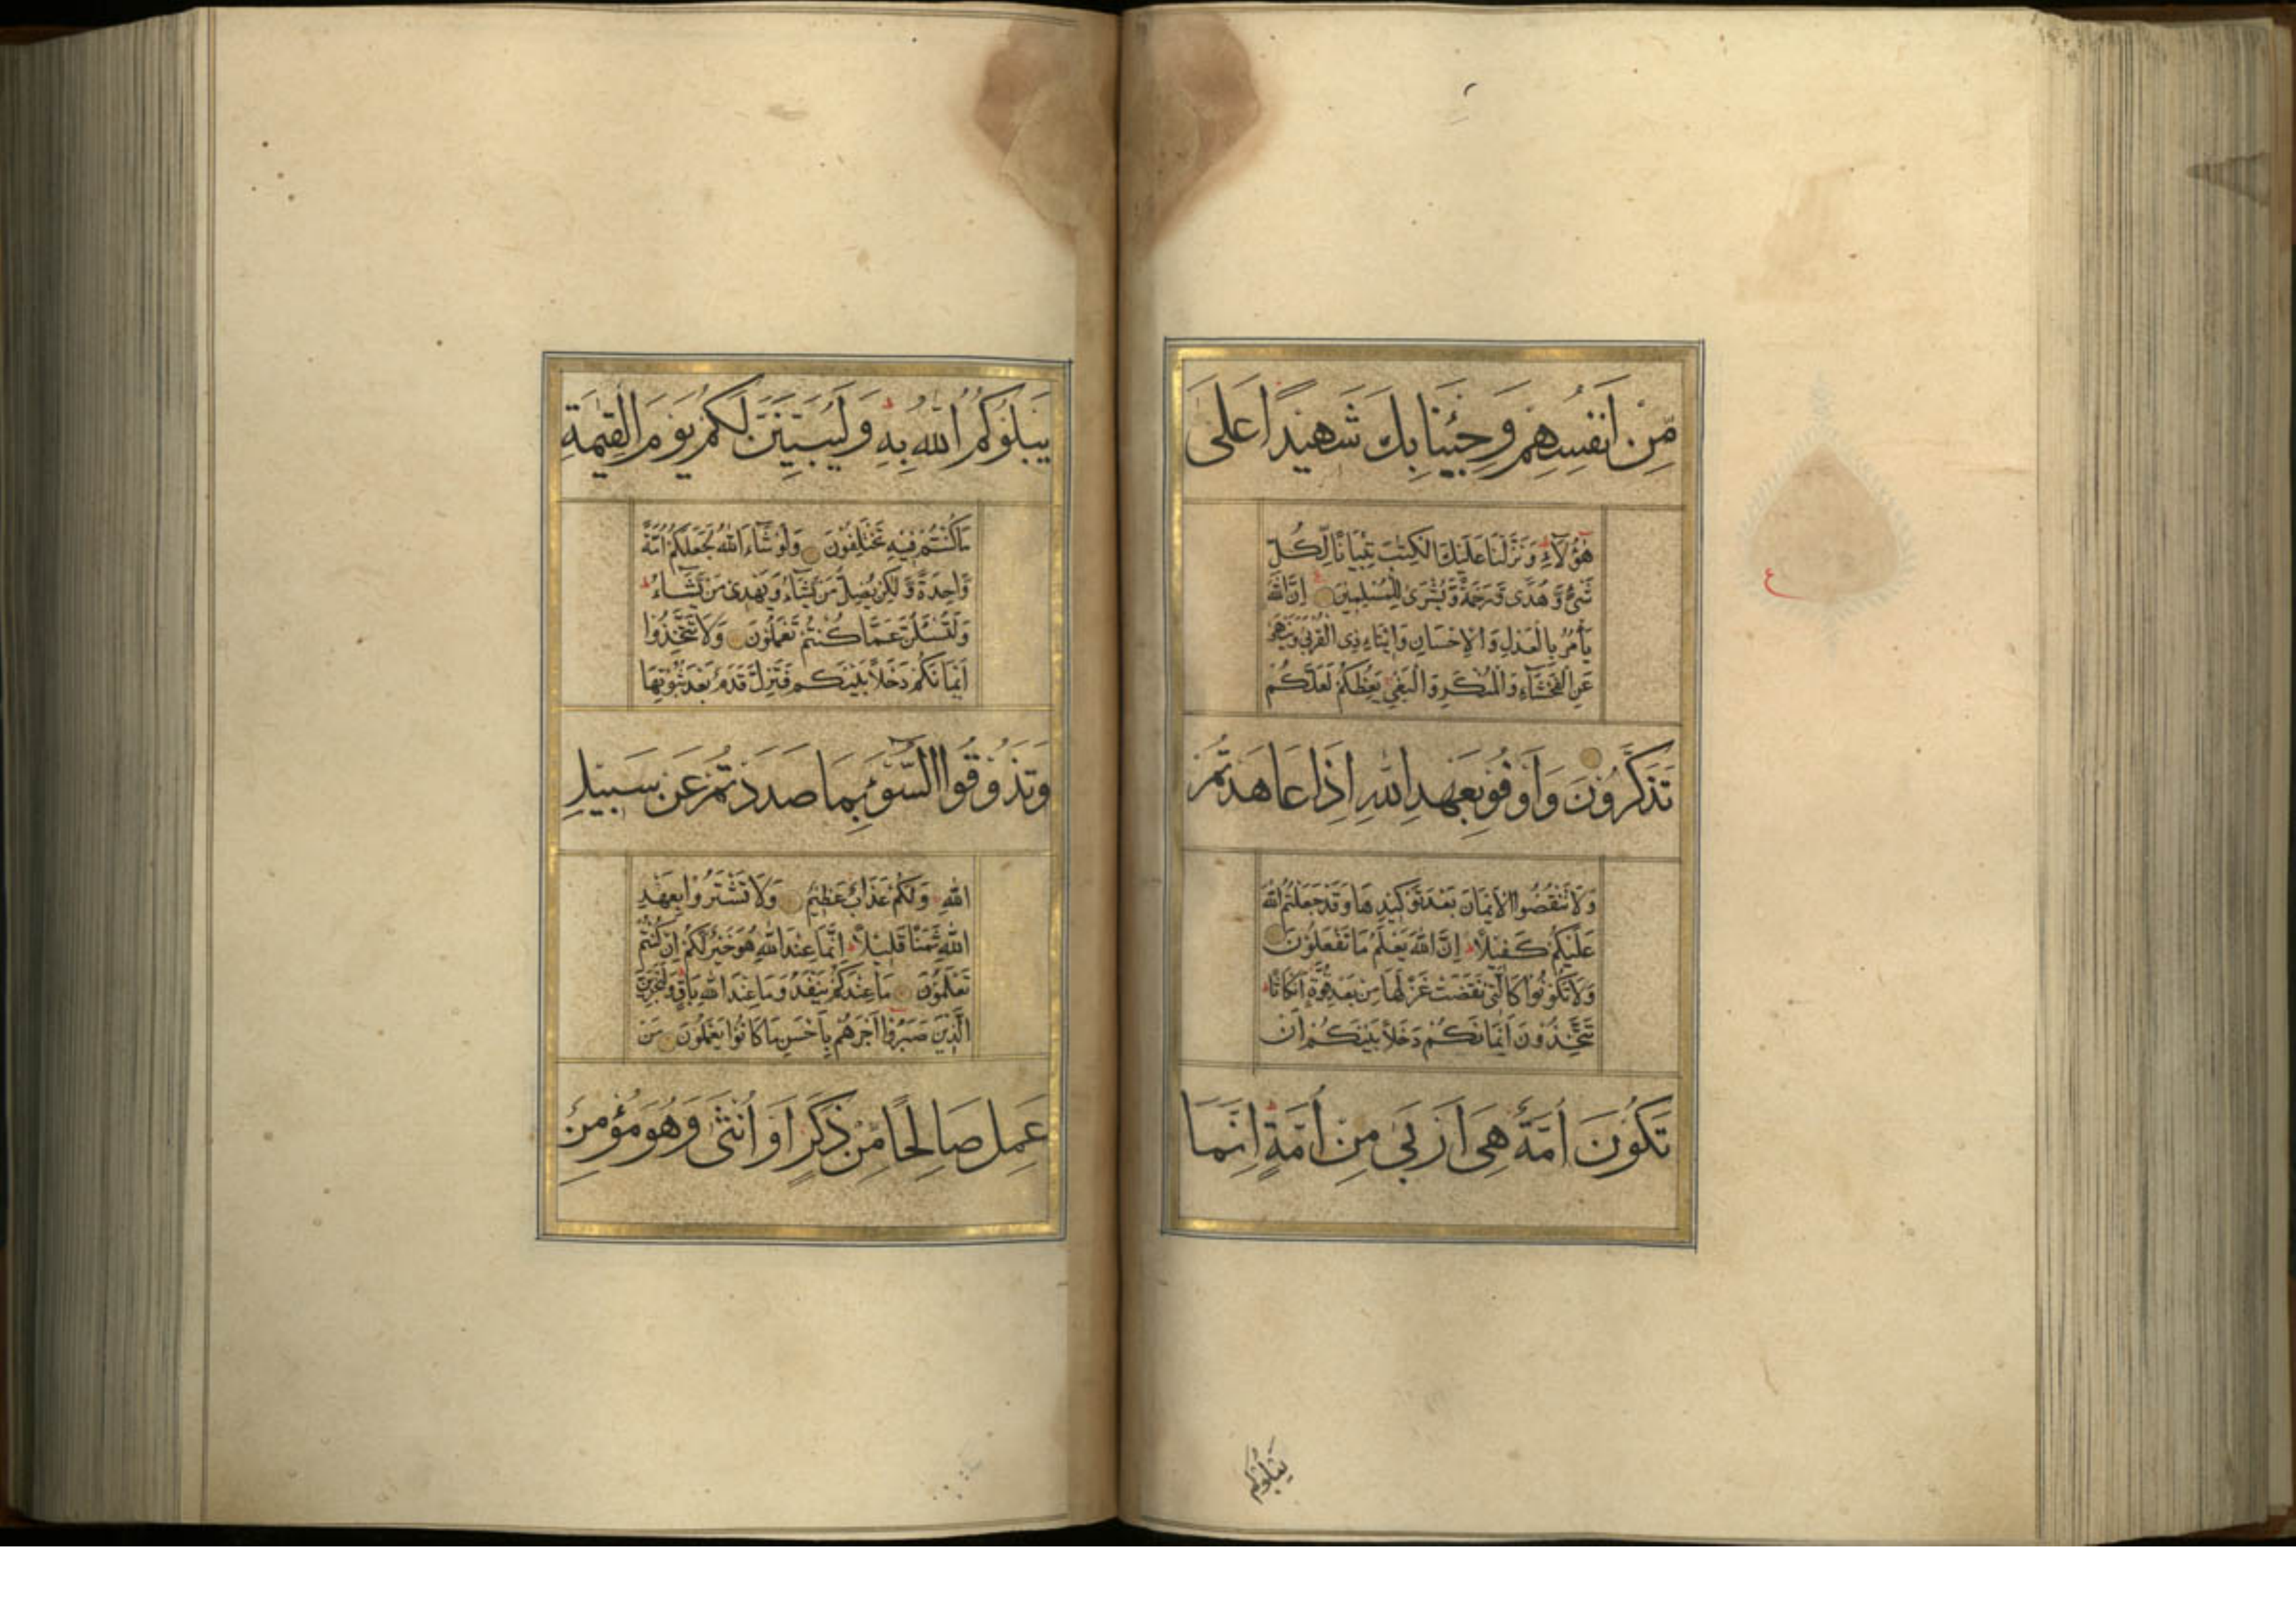 مِّنْ اَنفُسِهِمْ وَجِئْنَا بِكَ شَهِيْدًا عَلىٰ
هٰٓؤُلَآءِ وَنَزَّلْنَا عَلَيْكَ الْكِتٰبَ تِبْيَانًا لِّكُلِّ
شَىْءٍ وَّهُدًى وَّرَحْمَةً وَّبُشْرٰى لِلْمُسْلِمِيْنَ اِنَّ اللّٰهَ
يَأْمُرُ بِالْعَدْلِ وَالْاِحْسَانِ وَاِيْتَاءِ ذِى الْقُرْبٰى وَيَنْهٰى
عَنِ الْفَحْشَآءِ وَالْمُنْكَرِ وَالْبَغْىِ يَعِظُكُمْ لَعَلَّكُمْ
تَذَكَّرُوْنَ وَاَوْفُوْ بِعَهْدِ اللّٰهِ اِذَا عَاهَدْتُّمْ
وَلَا تَنْقُضُوا الْاَيْمَانَ بَعْدَ تَوْكِيْدِهَا وَقَدْ جَعَلْتُمُ اللّٰهَ
عَلَيْكُمْ كَفِيْلًا اِنَّ اللّٰهَ يَعْلَمُ مَا تَفْعَلُوْنَ
وَلَا تَكُوْنُوْا كَالَّتِىْ نَقَضَتْ غَزْلَهَا مِنْ بَعْدِ قُوَّةٍ اَنْكَاثًا
تَتَّخِذُوْنَ اَيْمَانَكُمْ دَخَلًا بَيْنَكُمْ اَنْ
تَكُوْنَ اُمَّةٌ هِىَ اَرْبٰى مِنْ اُمَّةٍ اِنَّمَا
يَبْلُوْكُمْ
يَبْلُوْكُمُ اللّٰهُ بِهٖ وَلَيُبَيِّنَنَّ لَكُمْ يَوْمَ الْقِيٰمَةِ
مَا كُنْتُمْ فِيْهِ تَخْتَلِفُوْنَ وَلَوْ شَآءَ اللّٰهُ لَجَعَلَكُمْ اُمَّةً
وَّاحِدَةً وَّلٰكِنْ يُّضِلُّ مَنْ يَّشَآءُ وَيَهْدِىْ مَنْ يَّشَآءُ
وَلَتُسْئَلُنَّ عَمَّا كُنْتُمْ تَعْمَلُوْنَ وَلَا تَتَّخِذُوْا
اَيْمَانَكُمْ دَخَلًا بَيْنَكُمْ فَتَزِلَّ قَدَمٌ بَعْدَ ثُبُوْتِهَا
وَتَذُوْقُوا السُّوْٓءَ بِمَا صَدَدْتُّمْ عَنْ سَبِيْلِ
اللّٰهِ وَلَكُمْ عَذَابٌ عَظِيْمٌ وَلَا تَشْتَرُوْا بِعَهْدِ
اللّٰهِ ثَمَنًا قَلِيْلًا اِنَّمَا عِنْدَ اللّٰهِ هُوَ خَيْرٌ لَّكُمْ اِنْ كُنْتُمْ
تَعْلَمُوْنَ مَا عِنْدَكُمْ يَنْفَدُ وَمَا عِنْدَ اللّٰهِ بَاقٍ وَلَنَجْزِيَنَّ
الَّذِيْنَ صَبَرُوْا اَجْرَهُمْ بِاَحْسَنِ مَا كَانُوْا يَعْمَلُوْنَ مَنْ
عَمِلَ صَالِحًا مِّنْ ذَكَرٍ اَوْ اُنْثٰى وَهُوَ مُؤْمِنٌ